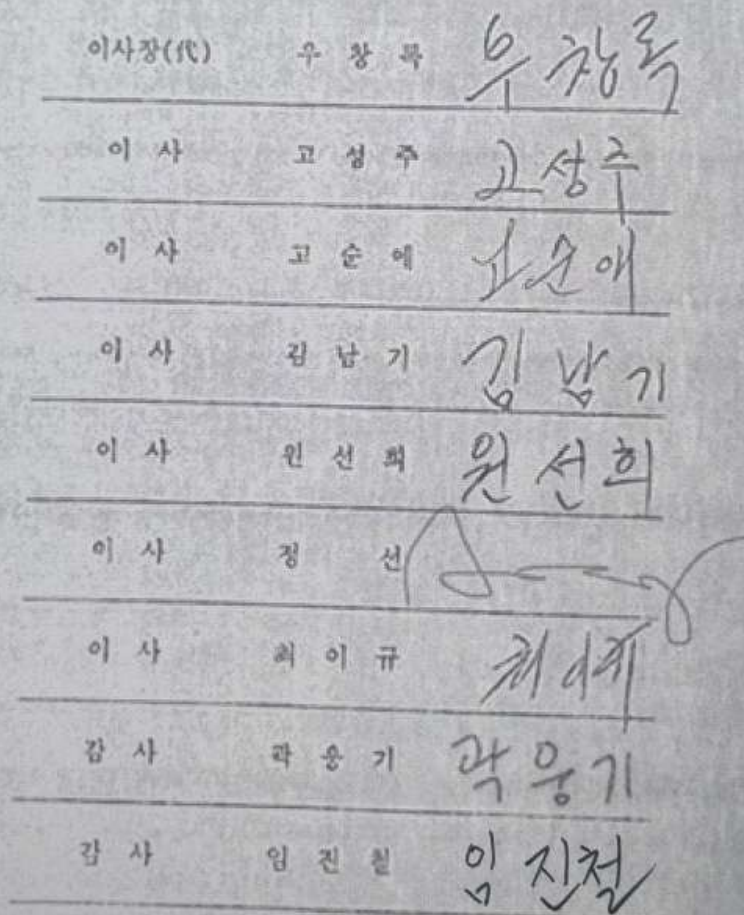 이사장(代) 우 창 록 우 창 록
이 사 고 성 주 고 성 주
이 사 고 순 애 고 순 애
이 사 김 남 기 김 남 기
이 사 원 선 희 원 선 희
이 사 정 선
이 사 최 이 규 최 이 규
감 사 곽 웅 기 곽 웅 기
감 사 임 진 철 임 진 철